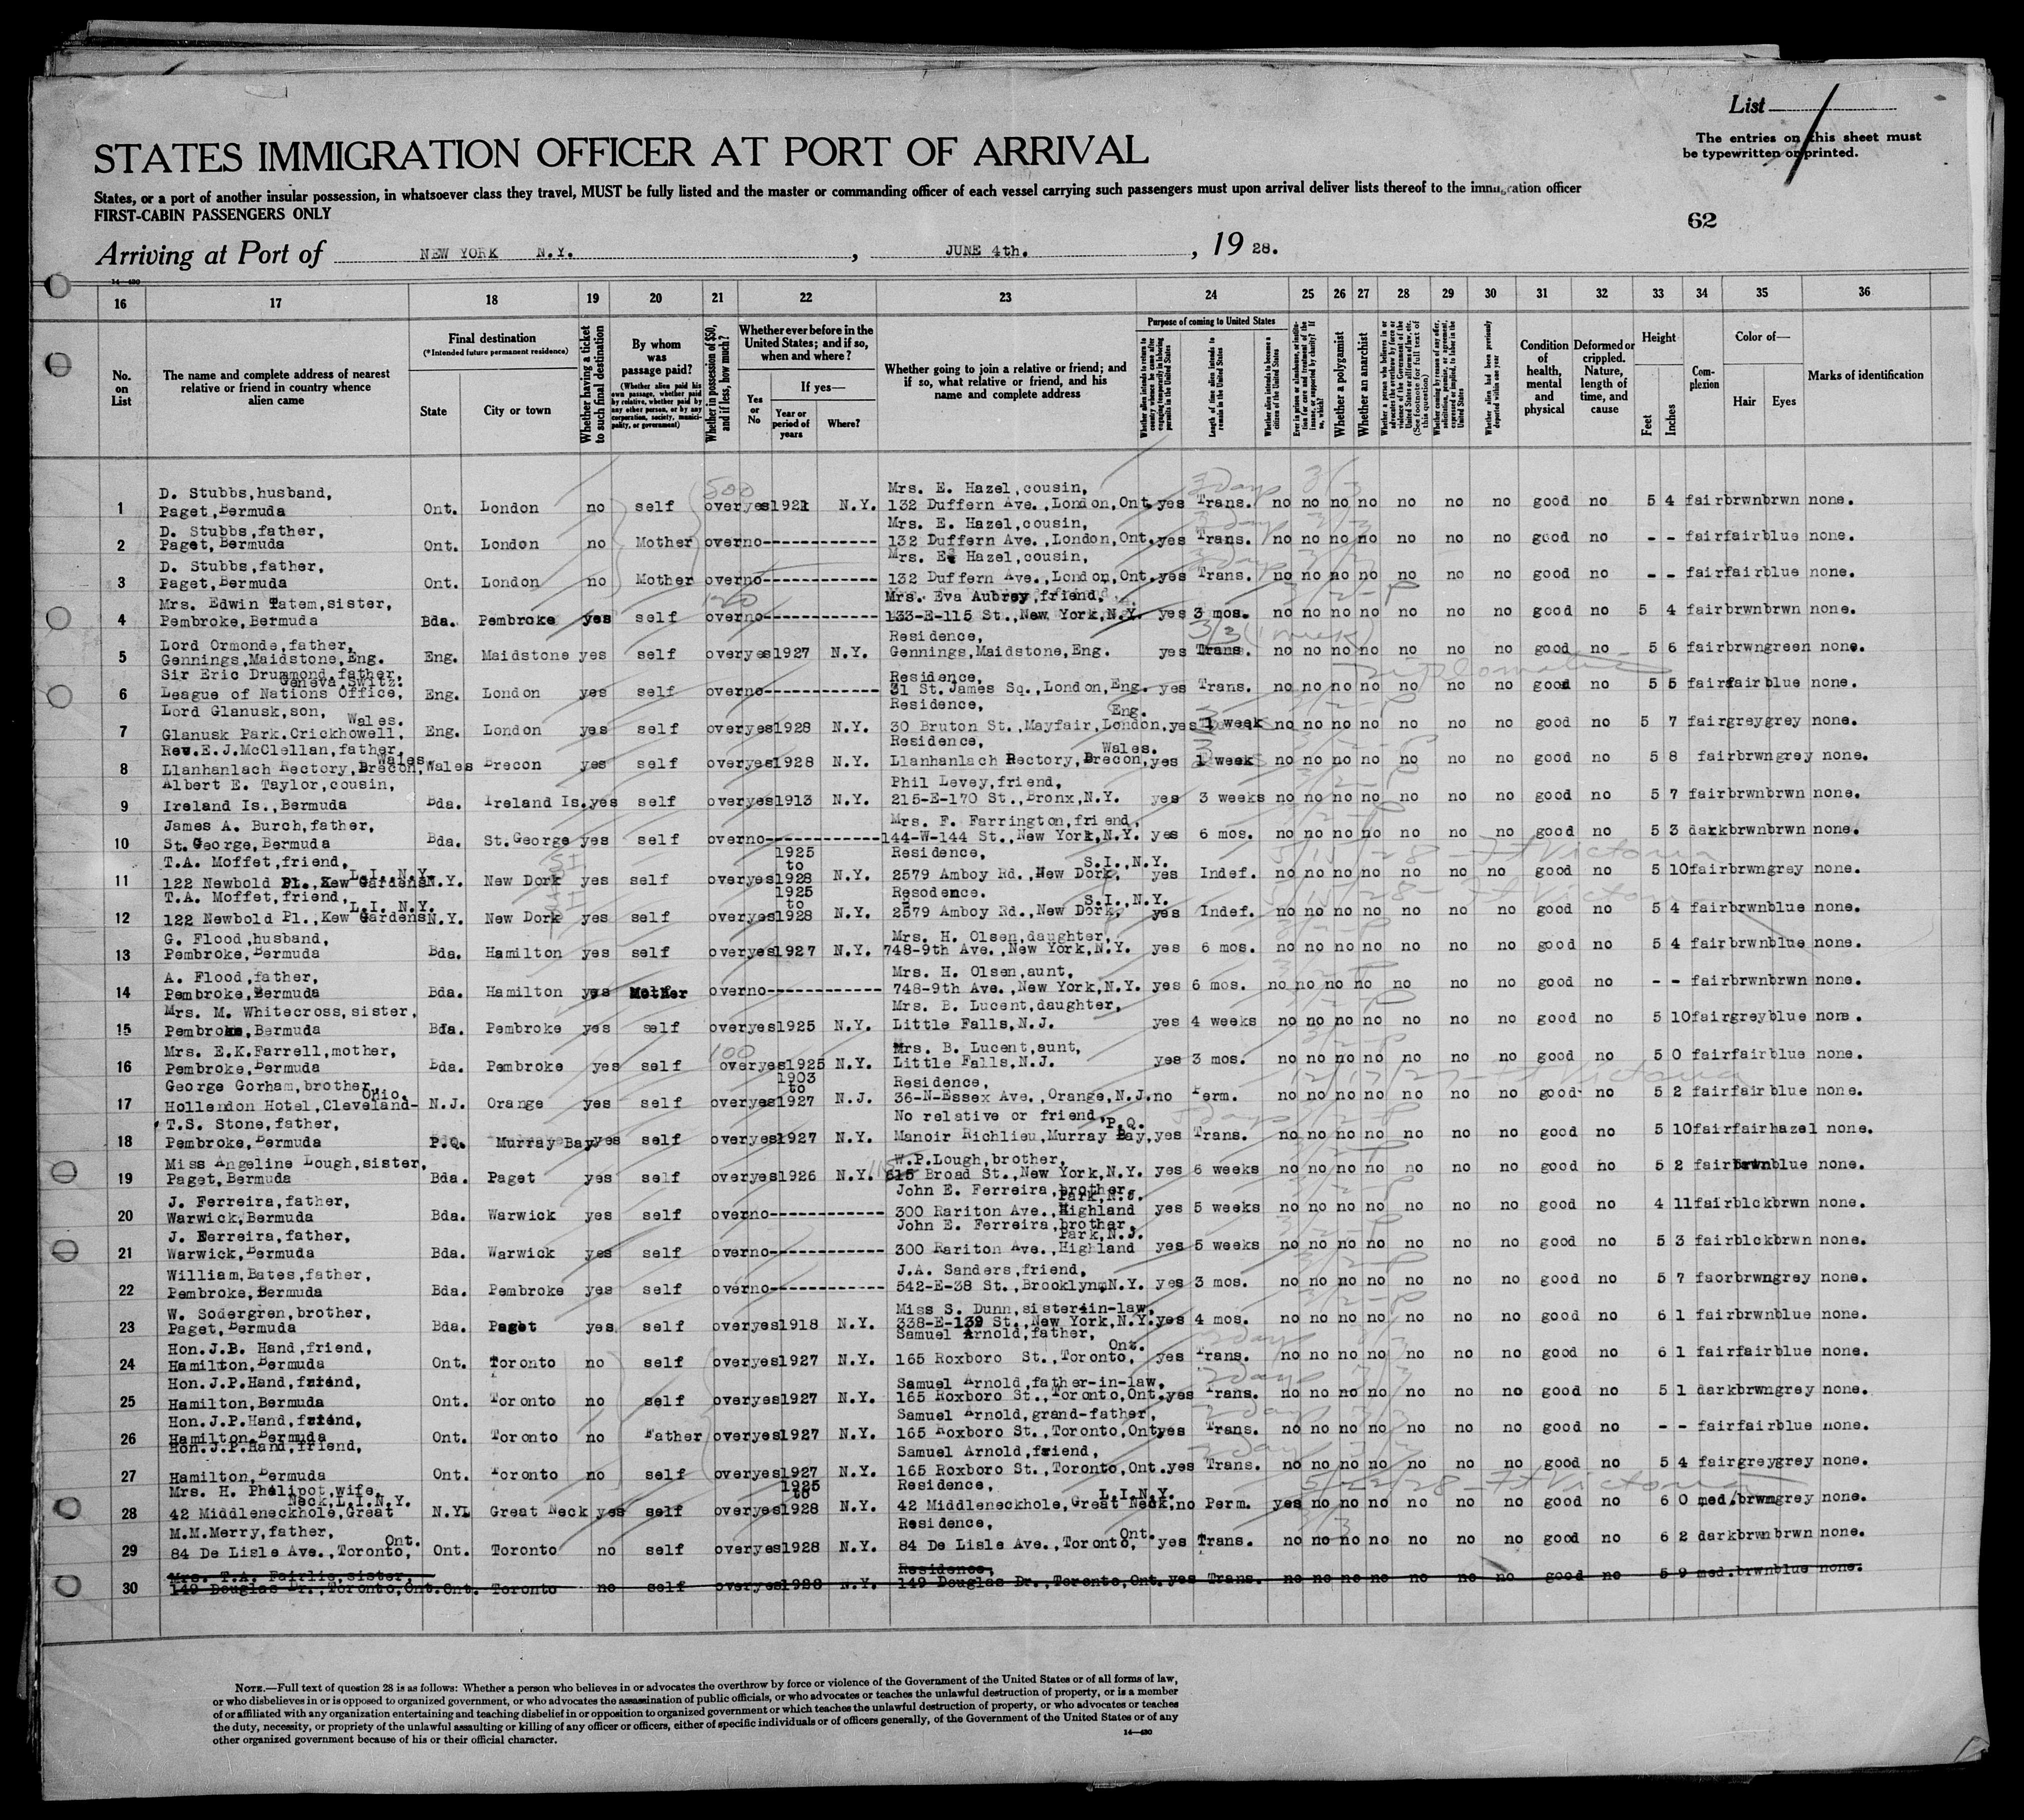 List
The entries on this sheet must
be typewritten or printed.
STATES IMMIGRATION OFFICER AT PORT OF ARRIVAL
States, or a port of another insular possession, in whatsoever class they travel, MUST be fully listed and the master or commanding officer of each vessel carrying such passengers must upon arrival deliver lists thereof to the immigration officer
FIRST-CABIN PASSENGERS ONLY
62
Arriving at Port of NEW YORK N.Y. , JUNE 4th. , 19 28.
14-430
16 17 18 19 20 21 22 23 24 25 26 27 28 29 30 31 32 33 34 35 36
No. on List
The name and complete address of nearest relative or friend in country whence alien came
Final destination
(*Intended future permanent residence)
State
City or town
Whether having a ticket to such final destination
By whom was passage paid?
(Whether alien paid his own passage, whether paid by relative, whether paid by any other person, or by any corporation, society, municipality, or government)
Whether in possession of $50, and if less, how much?
Whether ever before in the United States; and if so, when and where?
Yes or No
If yes—
Year or period of years
Where?
Whether going to join a relative or friend; and if so, what relative or friend, and his name and complete address
Purpose of coming to United States
Length of time alien intends to remain in the United States
Whether alien intends to become a citizen of the United States
Whether a polygamist
Whether an anarchist
Condition of health, mental and physical
Deformed or crippled. Nature, length of time, and cause
Height
Feet
Inches
Complexion
Color of—
Hair
Eyes
Marks of identification
1 D. Stubbs,husband, Paget,Bermuda Ont. London no self over yes 1921 N.Y. Mrs. E. Hazel,cousin, 132 Duffern Ave.,London,Ont. yes Trans. no no no no no no no good no 5 4 fair brwn brwn none.
2 D. Stubbs,father, Paget,Bermuda Ont. London no Mother over no----------- Mrs. E. Hazel,cousin, 132 Duffern Ave.,London,Ont. yes Trans. no no no no no no no good no - - fair fair blue none.
3 D. Stubbs,father, Paget,Bermuda Ont. London no Mother over no----------- Mrs. E. Hazel,cousin, 132 Duffern Ave.,London,Ont. yes Trans. no no no no no no no good no - - fair fair blue none.
4 Mrs. Edwin Tatem,sister, Pembroke,Bermuda Bda. Pembroke yes self over no----------- Mrs. Eva Aubrey,friend, 133-E-115 St.,New York,N.Y. yes 3 mos. no no no no no no no good no 5 4 fair brwn brwn none.
5 Lord Ormonde,father, Gennings,Maidstone,Eng. Eng. Maidstone yes self over yes 1927 N.Y. Residence, Gennings,Maidstone,Eng. yes Trans. no no no no no no no good no 5 6 fair brwn green none.
6 Sir Eric Drummond,father, Geneva,Switz. League of Nations Office, Eng. London yes self over no----------- Residence, 31 St.James Sq.,London,Eng. yes Trans. no no no no no no no good no 5 5 fair fair blue none.
7 Lord Glanusk,son, Wales. Glanusk Park.Crickhowell, Eng. London yes self over yes 1928 N.Y. Residence, Eng. 30 Bruton St.,Mayfair,London, yes 1 week no no no no no no no good no 5 7 fair grey grey none.
8 Rev.E.J.McClellan,father, Wales Llanhanlach Rectory,Brecon, Wales Brecon yes self over yes 1928 N.Y. Residence, Wales. Llanhanlach Rectory,Brecon, yes 1 week no no no no no no no good no 5 8 fair brwn grey none.
9 Albert E. Taylor,cousin, Ireland Is.,Bermuda Bda. Ireland Is. yes self over yes 1913 N.Y. Phil Levey,friend, 215-E-170 St.,Bronx,N.Y. yes 3 weeks no no no no no no no good no 5 7 fair brwn brwn none.
10 James A. Burch,father, St.George,Bermuda Bda. St.George yes self over no----------- Mrs. F. Farrington,friend, 144-W-144 St.,New York,N.Y. yes 6 mos. no no no no no no no good no 5 3 dark brwn brwn none.
11 T.A. Moffet,friend, L.I.,N.Y. 122 Newbold Pl.,Kew Gardens N.Y. New Dork yes self over yes 1925 to 1928 N.Y. Residence, S.I.,N.Y. 2579 Amboy Rd.,New Dork, yes Indef. no no no no no no no good no 5 10 fair brwn grey none.
12 T.A. Moffet,friend, L.I. N.Y. 122 Newbold Pl.,Kew Gardens N.Y. New Dork yes self over yes 1925 to 1928 N.Y. Resodence. S.I.,N.Y. 2579 Amboy Rd.,New Dork, yes Indef. no no no no no no no good no 5 4 fair brwn blue none.
13 G. Flood,husband, Pembroke,Bermuda Bda. Hamilton yes self over yes 1927 N.Y. Mrs. H. Olsen,daughter, 748-9th Ave.,New York,N.Y. yes 6 mos. no no no no no no no good no 5 4 fair brwn blue none.
14 A. Flood,father, Pembroke,Bermuda Bda. Hamilton yes Mother over no----------- Mrs. H. Olsen,aunt, 748-9th Ave.,New York,N.Y. yes 6 mos. no no no no no no no good no - - fair brwn blue none.
15 Mrs. M. Whitecross,sister, Pembroke,Bermuda Bda. Pembroke yes self over yes 1925 N.Y. Mrs. B. Lucent,daughter, Little Falls,N.J. yes 4 weeks no no no no no no no good no 5 10 fair grey blue none.
16 Mrs. E.K.Farrell,mother, Pembroke,Bermuda Bda. Pembroke yes self 100 over yes 1925 N.Y. Mrs. B. Lucent,aunt, Little Falls,N.J. yes 3 mos. no no no no no no no good no 5 0 fair fair blue none.
17 George Gorham,brother, Ohio. Hollendon Hotel,Cleveland- N.J. Orange yes self over yes 1903 to 1927 N.J. Residence, 36-N-Essex Ave.,Orange,N.J. no Perm. no no no no no no no good no 5 2 fair fair blue none.
18 T.S. Stone,father, Pembroke,Bermuda P.Q. Murray Bay yes self over yes 1927 N.Y. No relative or friend, P.Q. Manoir Richlieu,Murray Bay, yes Trans. no no no no no no no good no 5 10 fair fair hazel none.
19 Miss Angeline Lough,sister, Paget,Bermuda Bda. Paget yes self over yes 1926 N.Y. W.P.Lough,brother, Broad St.,New York,N.Y. yes 6 weeks no no no no no no no good no 5 2 fair brwn blue none.
20 J. Ferreira,father, Warwick,Bermuda Bda. Warwick yes self over no----------- John E. Ferreira,brother, Park,N.J. 300 Rariton Ave.,Highland yes 5 weeks no no no no no no no good no 4 11 fair blck brwn none.
21 J. Ferreira,father, Warwick,Bermuda Bda. Warwick yes self over no----------- John E. Ferreira,brother, Park,N.J. 300 Rariton Ave.,Highland yes 5 weeks no no no no no no no good no 5 3 fair blck brwn none.
22 William,Bates,father, Pembroke,Bermuda Bda. Pembroke yes self over no----------- J.A. Sanders,friend, 542-E-38 St.,Brooklyn,N.Y. yes 3 mos. no no no no no no no good no 5 7 faor brwn grey none.
23 W. Sodergren,brother, Paget,Bermuda Bda. Paget yes self over yes 1918 N.Y. Miss S. Dunn,sister-in-law, 338-E-139 St.,New York,N.Y. yes 4 mos. no no no no no no no good no 6 1 fair brwn blue none.
24 Hon.J.B. Hand,friend, Hamilton,Bermuda Ont. Toronto no self over yes 1927 N.Y. Samuel Arnold,father, Ont. 165 Roxboro St.,Toronto, yes Trans. no no no no no no no good no 6 1 fair fair blue none.
25 Hon.J.P.Hand,friend, Hamilton,Bermuda Ont. Toronto no self over yes 1927 N.Y. Samuel Arnold,father-in-law, 165 Roxboro St.,Toronto,Ont. yes Trans. no no no no no no no good no 5 1 dark brwn grey none.
26 Hon.J.P.Hand,friend, Hamilton,Bermuda Ont. Toronto no Father over yes 1927 N.Y. Samuel Arnold,grand-father, 165 Roxboro St.,Toronto,Ont yes Trans. no no no no no no no good no - - fair fair blue none.
27 Hon.J.P.Hand,friend, Hamilton,Bermuda Ont. Toronto no self over yes 1927 N.Y. Samuel Arnold,friend, 165 Roxboro St.,Toronto,Ont. yes Trans. no no no no no no no good no 5 4 fair grey grey none.
28 Mrs. H. Philipot,wife, Neck,L.I.N.Y. 42 Middleneckhole,Great N.Y. Great Neck yes self over yes 1925 to 1928 N.Y. Residence, L.I.N.Y. 42 Middleneckhole,Great Neck, no Perm. yes no no no no no no good no 6 0 med. brwn grey none.
29 M.M.Merry,father, Ont. 84 De Lisle Ave.,Toronto, Ont. Toronto no self over yes 1928 N.Y. Residence, Ont. 84 De Lisle Ave.,Toronto, yes Trans. no no no no no no no good no 6 2 dark brwn brwn none.
30 Mrs. T.A. Fairlie,sister, 149 Douglas Dr.,Toronto,Ont. Ont. Toronto no self over yes 1928 N.Y. Residence, 149 Douglas Dr.,Toronto,Ont. yes Trans. no no no no no no no good no 5 9 med. brwn blue none.
NOTE.—Full text of question 28 is as follows: Whether a person who believes in or advocates the overthrow by force or violence of the Government of the United States or of all forms of law,
or who disbelieves in or is opposed to organized government, or who advocates the assassination of public officials, or who advocates or teaches the unlawful destruction of property, or is a member
of or affiliated with any organization entertaining and teaching disbelief in or opposition to organized government or which teaches the unlawful destruction of property, or who advocates or teaches
the duty, necessity, or propriety of the unlawful assaulting or killing of any officer or officers, either of specific individuals or of officers generally, of the Government of the United States or of any
other organized government because of his or their official character.
14-430